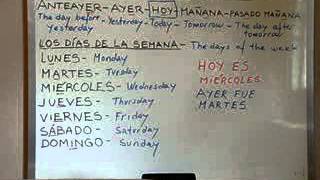 ANTEAYER-AYER-HOY-MAÑANA-PASADO MAÑANA
The day before-Yesterday-Today-Tomorrow-The day after
yesterday tomorrow
LOS DÍAS DE LA SEMANA-The days of the week
LUNES-Monday
MARTES-Tuesday
MIERCOLES-Wednesday
JUEVES-Thursday
VIERNES-Friday
SÁBADO-Saturday
DOMINGO-Sunday
HOY ES
MIÉRCOLES
AYER FUE
MARTES